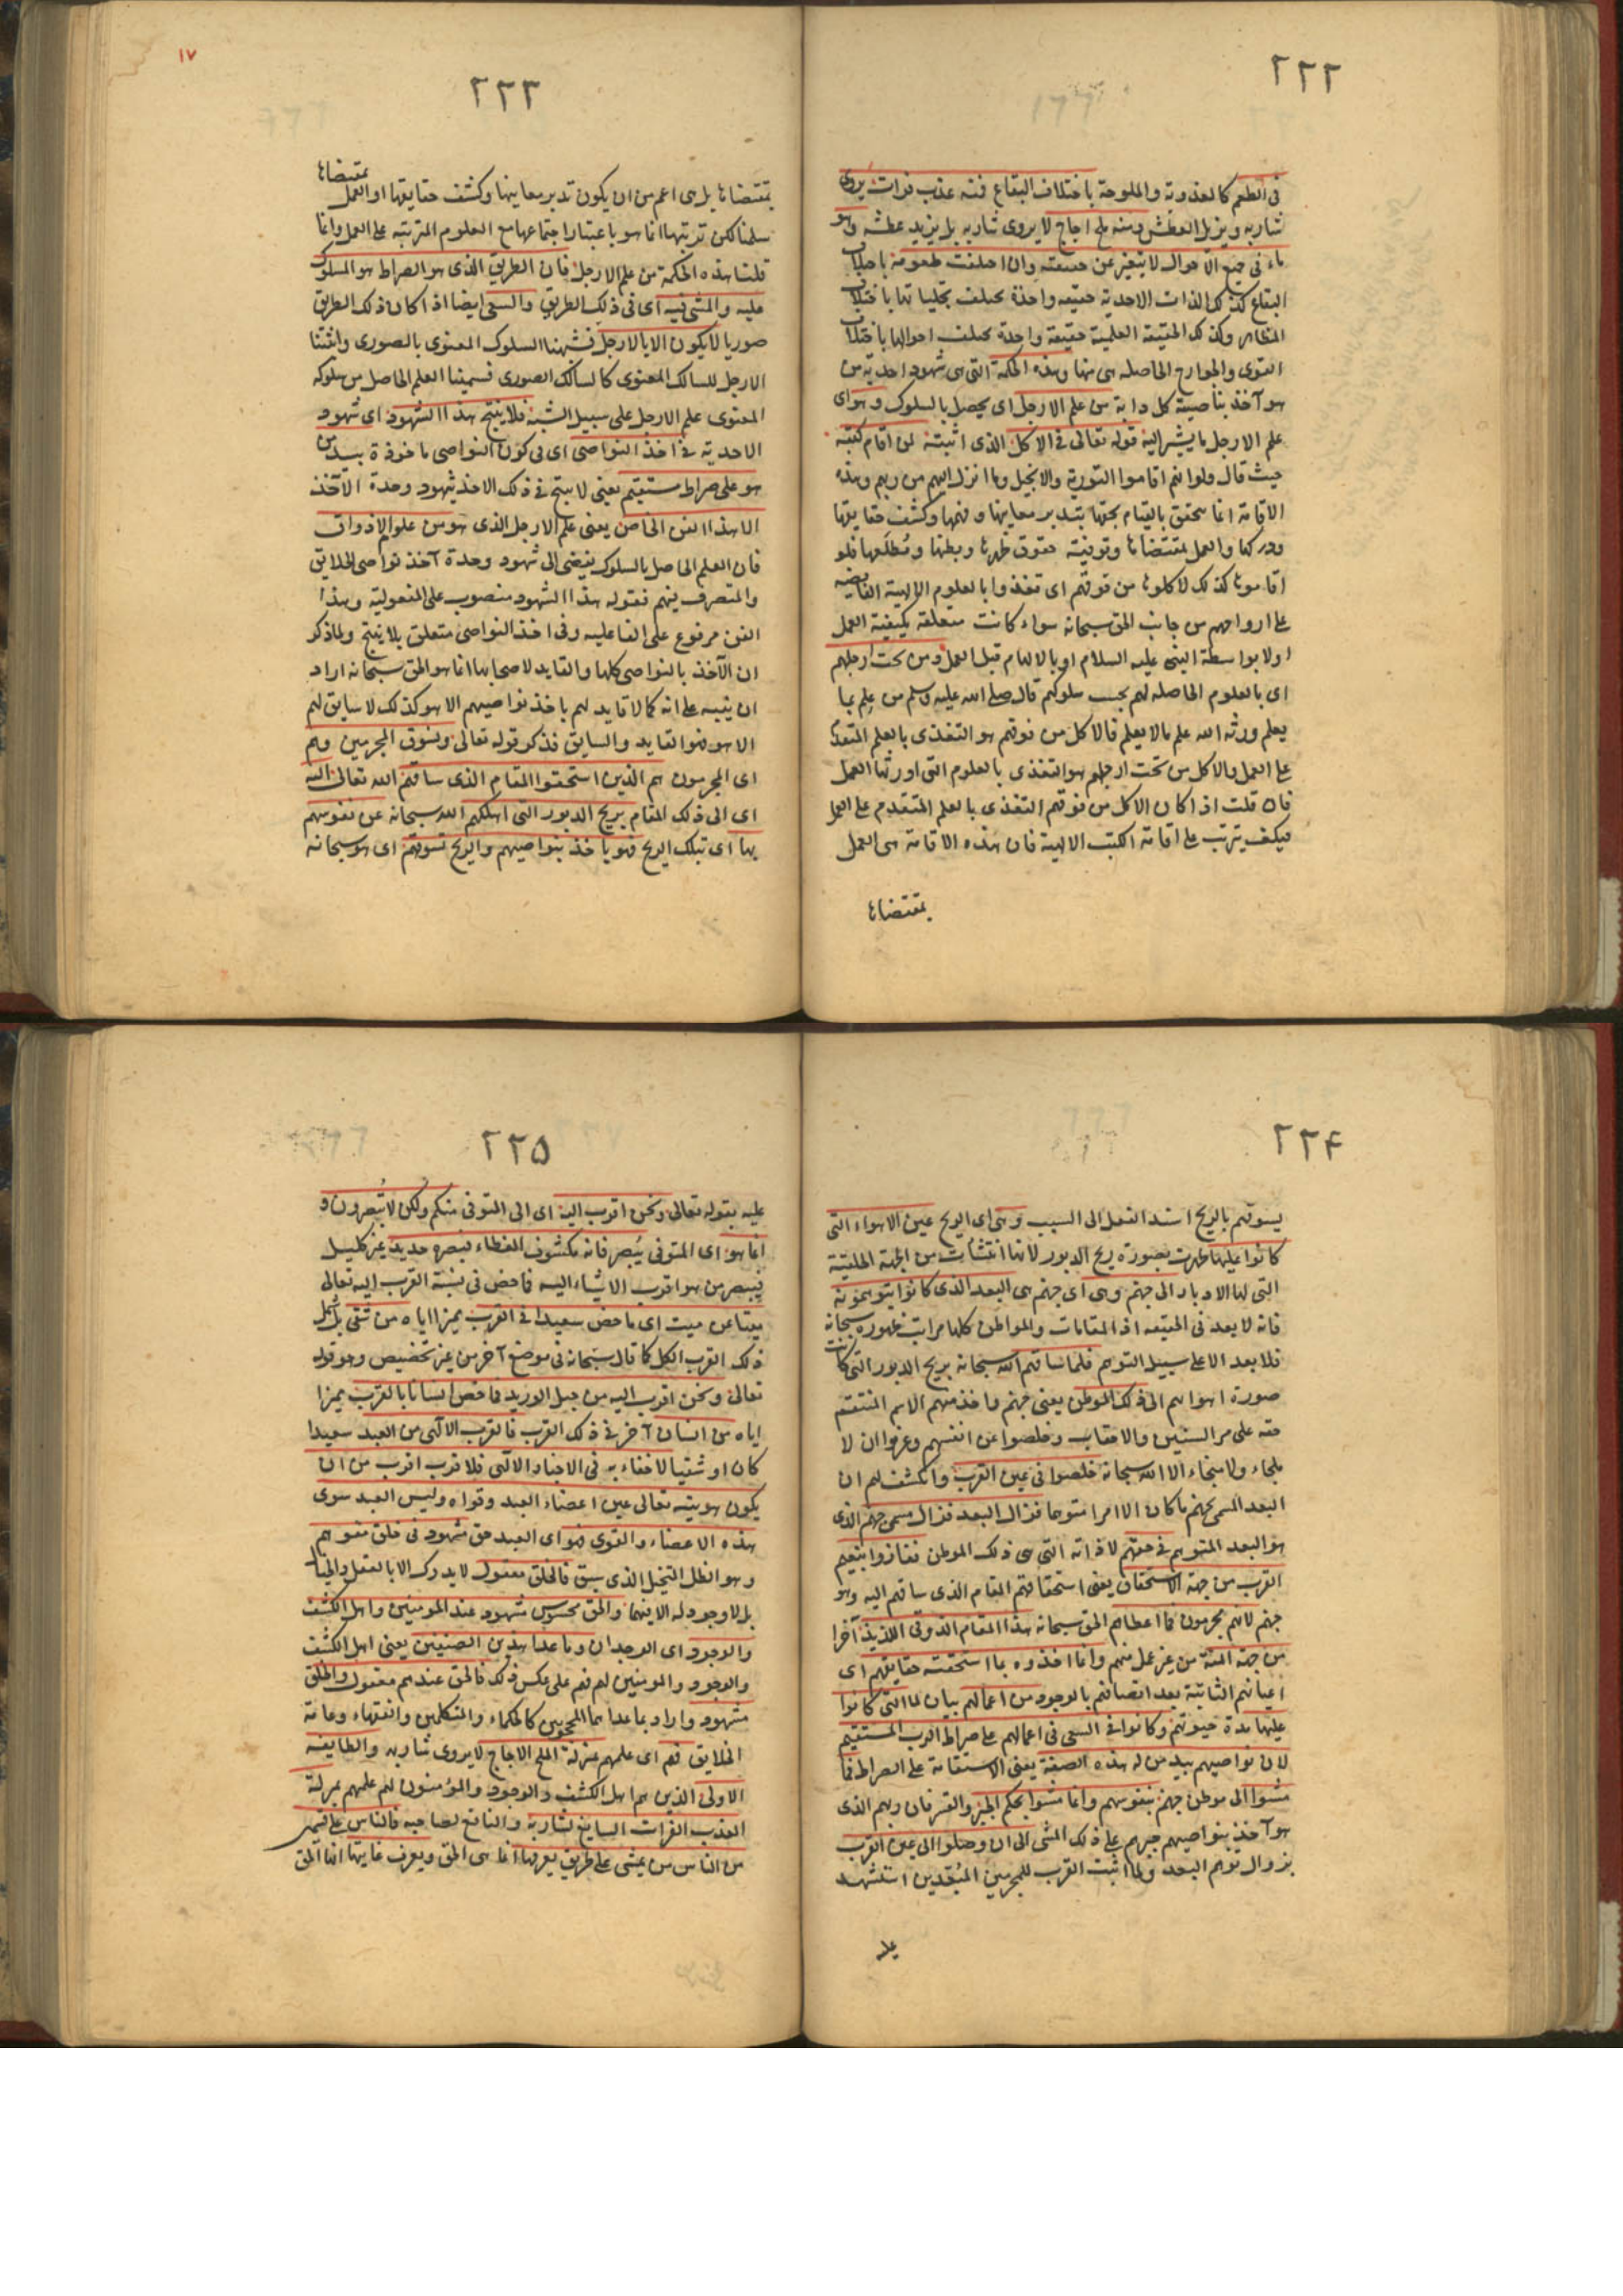 ٢٢٢
في الطعم كالعذوبة والملوحة باختلاف البقاع فمنه عذب فرات يروى
شاربه ويزيل العطش ومنه ملح اجاج لا يروى شاربه بل يزيد عطشه وهو
ماء في جميع الاحوال لا يتغير عن حقيقته وان اختلفت طعومه باختلاف
البقاع كذلك الذات الاحدية حقيقه واحدة يختلف تجلياتها باختلاف
المظاهر وكذلك الحقيقة العلمية حقيقة واحدة يختلف احوالها باختلاف
القوى والجوارح الحاصله هى منها وهذه الحكمة التى هى شهود احدية من
هو آخذ بناصية كل دابة من علم الارجل اى يحصل بالسلوك وهو اى
علم الارجل ما يشير اليه قوله تعالى فى الاكل الذى اثبته لمن اقام كتبه
حيث قال ولو انهم اقاموا التورية والانجيل وما انزل اليهم من ربهم وهذه
الاقامة انما يتحقق بالقيام بحقها بتدبر معانيها وفهمها وكشف حقايقها
ودركها والعمل بمقتضاها وتوفية حقوق ظهرها وبطنها ومُطّلَعها فلو
اقاموها كذلك لاكلوها من فوقهم اى تغذوا بالعلوم الالهية الفايضه
على ارواحهم من جانب الحق سبحانه سواء كانت متعلقة بكيفية العمل
اولا بواسطة النبى عليه السلام او بالالهام قبل العمل ومن تحت ارجلهم
اى بالعلوم الحاصله لهم بحسب سلوكهم قال صلى الله عليه وسلم من علم بما
يعلم ورثه الله علم ما لا يعلم فالاكل من فوقهم هو التغذى بالعلم المتقدم
على العمل والاكل من تحت ارجلهم هو التغذى بالعلوم التى اورثها العمل
فان قلت اذا كان الاكل من فوقهم التغذى بالعلم المتقدم على العمل
فكيف يترتب على اقامة الكتب الالهية فان هذه الاقامة هى العمل
بمقتضاها
١٧
٢٢٣
بمقتضاها
بمقتضاها بل هى اعم من ان يكون تدبر معانيها وكشف حقايقها او العمل
سلمنا لكن ترتبها انما هو باعتبار اجتماعها مع العلوم المترتبه على العمل وانما
قلنا هذه الحكمة من علم الارجل فان الطريق الذى هو الصراط هو المسلوك
عليه والمشى فيه اى فى ذلك الطريق والسعى ايضا اذا كان ذلك الطريق
صوريا لا يكون الا بالارجل فشبهنا السلوك المعنوى بالصورى واثبتنا
الارجل للسالك المعنوى كالسالك الصورى فسمينا العلم الحاصل من سلوكه
المعنوى علم الارجل على سبيل الشبه فلا ينتج هذا الشهود اى شهود
الاحدية فى اخذ النواصى اى فى كون النواصى ماخوذة بيد من
هو على صراط مستقيم يعنى لا ينتج فى ذلك الاخذ شهود وحدة الآخذ
الا هذا الفن الخاص يعنى علم الارجل الذى هو من علوم الاذواق
فان العلم الحاصل بالسلوك يفضى الى شهود وحدة آخذ نواصى الخلايق
والمتصرف فيهم فقوله هذا الشهود منصوب على المفعولية وهذا
الفن مرفوع على الفاعليه وفى اخذ النواصى متعلق بلا ينتج ولما ذكر
ان الآخذ بالنواصى كلها والقايد لاصحابها انما هو الحق سبحانه اراد
ان ينبه على انه كما لا قايد لهم باخذ نواصيهم الا هو كذلك لا سايق لهم
الا هو فهو القايد والسايق فذكر قوله تعالى ونسوق المجرمين وهم
اى المجرمون هم الذين استحقوا المقام الذى ساقهم الله تعالى اليه
اى الى ذلك المقام بريح الدبور التى اهلكهم الله سبحانه عن نفوسهم
بها اى بتلك الريح فهو ياخذ بنواصيهم والريح تسوقهم اى هو سبحانه
٢٢۴
يسوقهم بالريح اسند الفعل الى السبب وهى اى الريح عين الاهواء التى
كانوا عليها ظهرت بصورة ريح الدبور لانها انتشأت من الجهة الخلقية
التى لها الادبار الى جهنم وهى اى جهنم هى البعد الذى كانوا يتوهمونه
فانه لا بعد فى الحقيقه اذ المقامات والمواطن كلها مراتب ظهوره سبحانه
فلا بعد الا على سبيل التوهم فلما ساقهم الله سبحانه بريح الدبور التى كانت
صورة اهوائهم الى ذلك الموطن يعنى جهنم واخذ منهم الاسم المنتقم
حقه على مر السنين والاحقاب وخلصوا عن انفسهم وعرفوا ان لا
ملجاء ولا منجاء الا الله سبحانه خلصوا فى عين القرب وانكشف لهم ان
البعد المسمى بجهنم ما كان الا امرا متوهما فزال البعد فزال مسمى جهنم الذى
هو البعد المتوهم فى حقهم لا ذاته التى هى ذلك الموطن ففازوا بنعيم
القرب من جهة الاستحقاق يعنى استحقاقهم المقام الذى ساقهم اليه وهو
جهنم لانهم مجرمون فما اعطاهم الحق سبحانه هذا المقام الذوقى اللذيذ آخرا
من جهة المنة من غير عمل منهم وانما اخذوه بما استحقته حقايقهم اى
اعيانهم الثابتة بعد اتصافهم بالوجود من اعمالهم بيان لما التى كانوا
عليها مدة حيوتهم وكانوا فى السعى فى اعمالهم على صراط الرب المستقيم
لان نواصيهم بيد من له هذه الصفة يعنى الاستقامة على الصراط فما
مشوا الى موطن جهنم بنفوسهم وانما مشوا بحكم الجبر والقسر فان ربهم الذى
هو آخذ بنواصيهم جبرهم على ذلك المشى الى ان وصلوا الى عين القرب
بزوال توهم البعد ولما اثبت القرب للمجرمين المُبْعَدين استشهد
عليه
٢٢۵
عليه بقوله تعالى ونحن اقرب اليه اى الى المتوفى منكم ولكن لا تُبصرون و
انما هو اى المتوفى يُبصر فانه مكشوف الغطاء فبصره حديد غير كليل
فيبصر من هو اقرب الاشياء اليه فما خص فى نسبة القرب اليه تعالى
ميتا من ميت اى ما خص سعيدا فى القرب مميزا اياه من شقى بل كل
ذلك القرب الكل كما قال سبحانه فى موضع آخر من غير تخصيص وهو قوله
تعالى ونحن اقرب اليه من حبل الوريد فما خص انسانا بالقرب مميزا
اياه من انسان آخر فى ذلك القرب فالقرب الالهى من العبد سعيدا
كان او شقيا لا خفاء به فى الاخبار الالهى فلا قرب اقرب من ان
يكون هويته تعالى عين اعضاء العبد وقواه وليس العبد سوى
هذه الاعضاء والقوى فهو اى العبد حق مشهود فى خلق متوهم
وهو الظل المتخيل الذى سبق فالخلق معقول لا يدرك الا بالعقل والخيال
بل لا وجود له الا فيهما والحق محسوس مشهود عند المومنين واهل الكشف
والوجود اى الوجدان وما عدا هذين الصنفين يعنى اهل الكشف
والوجود والمومنين لهم فهم على عكس ذلك فالحق عندهم معقول والخلق
مشهود واراد بما عداهما المحجوبين كالحكماء والمتكلمين والفقهاء وعامة
الخلايق فهم اى علمهم بمنزلة الملح الاجاج لا يروى شاربه والطايفه
الاولى الذين هم اهل الكشف والوجود والمؤمنون لهم علمهم بمنزلة
العذب الفرات السايغ لشاربه والنافع لصاحبه فالناس على قسمين
من الناس من يمشى على طريق يعرفها انما هى الحق ويعرف غايتها انها الحق